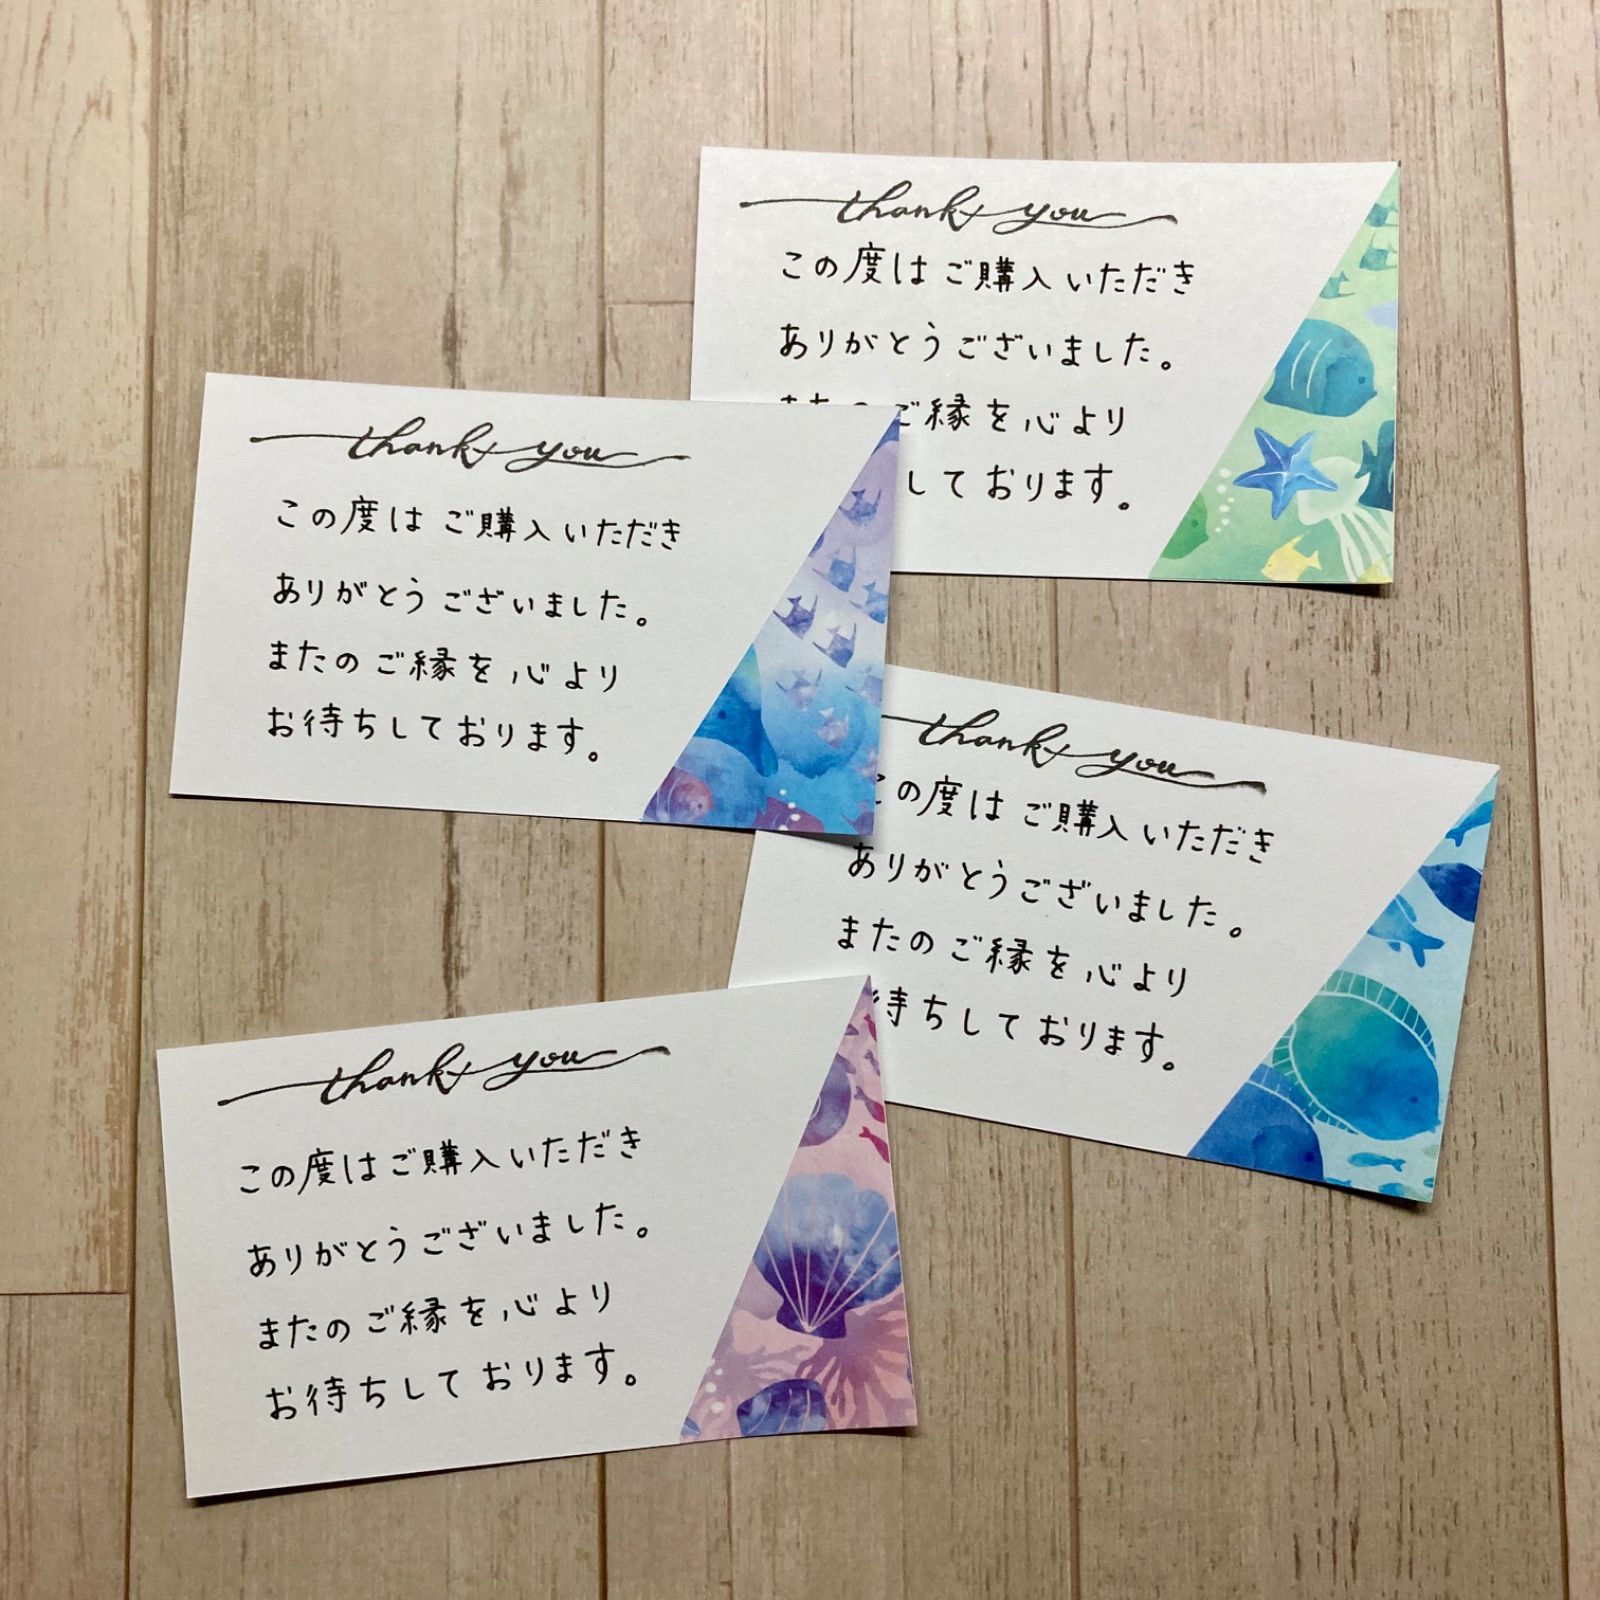 thank you
この度はご購入いただき
ありがとうございました。
ご縁を心より
しております。
thank you
この度はご購入いただき
ありがとうございました。
またのご縁を心より
お待ちしております。
thank you
の度はご購入いただき
ありがとうございました。
またのご縁を心より
待ちしております。
thank you
この度はご購入いただき
ありがとうございました。
またのご縁を心より
お待ちしております。